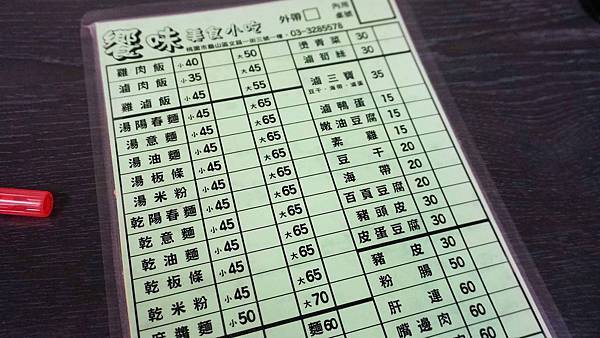 饗味 美食小吃
外帶□
內用
桌號
桃園市龜山區文昌一街三號一樓・03-3285578
雞肉飯 小40 大50
滷肉飯 小35 大45
雞滷飯 小45 大55
湯陽春麵 小45 大65
湯意麵 小45 大65
湯油麵 小45 大65
湯板條 小45 大65
湯米粉 小45 大65
乾陽春麵 小45 大65
乾意麵 小45 大65
乾油麵 小45 大65
乾板條 小45 大65
乾米粉 小45 大70
麻醬麵 小50
麵60
燙青菜 30
滷筍絲 30
滷三寶 35
豆干、海帶、滷蛋
滷鴨蛋 15
嫩油豆腐 15
素雞 15
豆干 15
海帶 20
百頁豆腐 20
豬頭皮 30
皮蛋豆腐 30
豬皮 30
粉腸 50
肝連 60
嘴邊肉 60